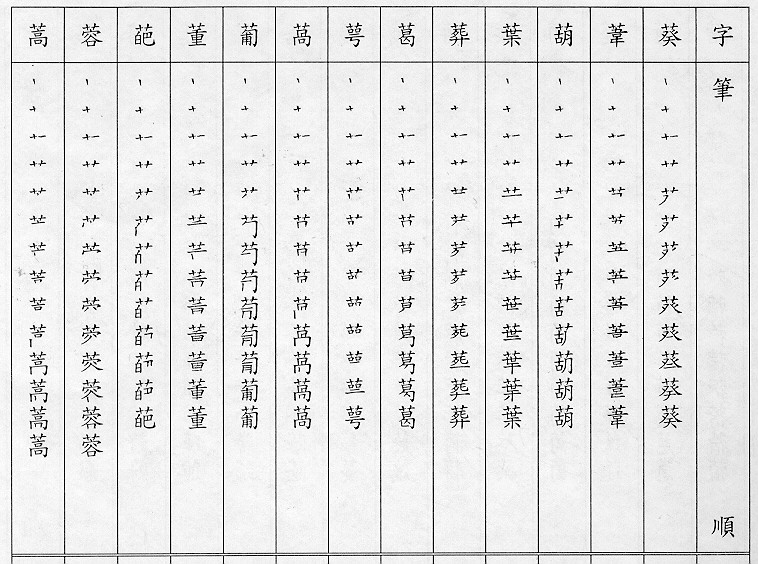 字 筆 順
葵 葵
葦 葦
葫 葫
葉 葉
葬 葬
葛 葛
萼 萼
萵 萵
葡 葡
董 董
葩 葩
蓉 蓉
蒿 蒿